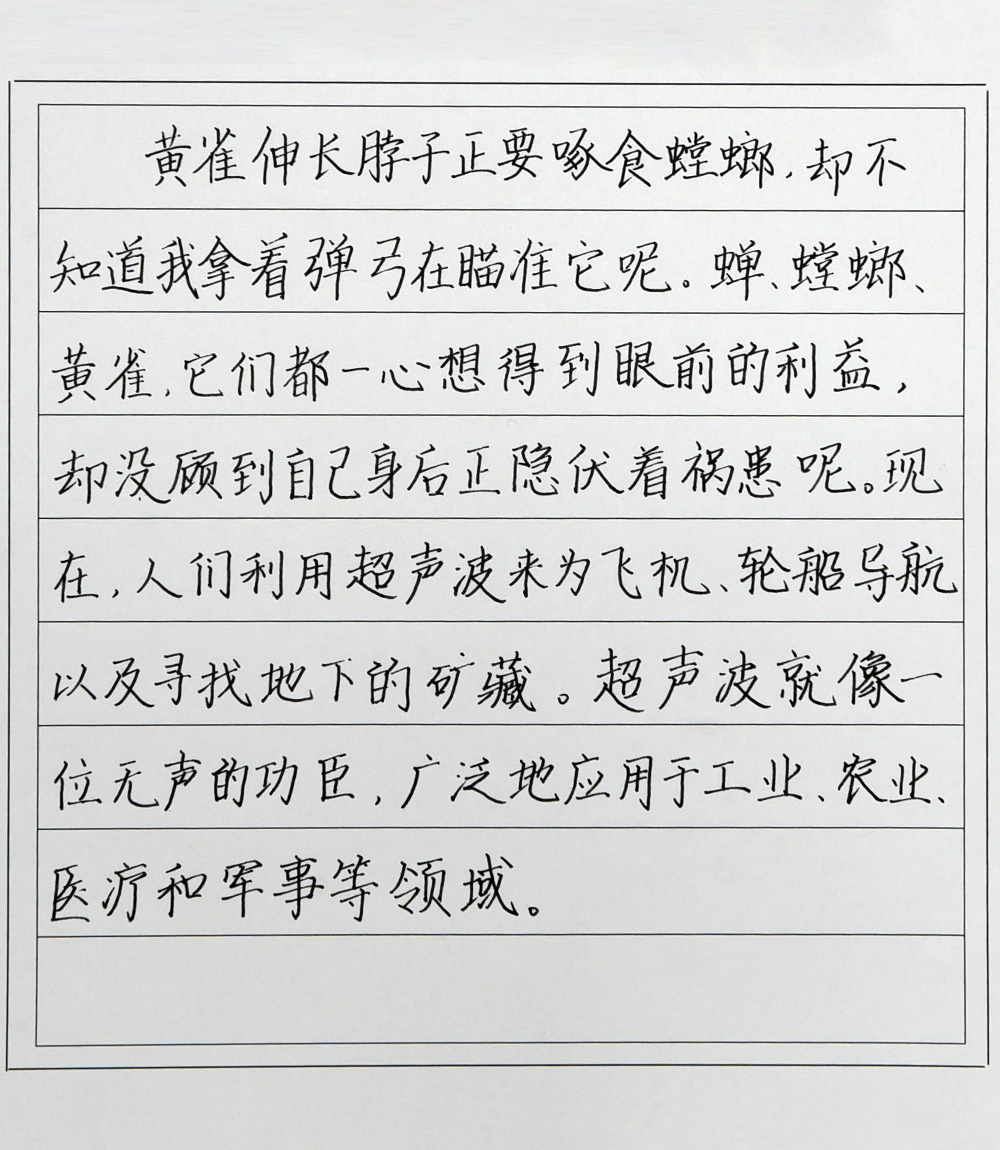 黄雀伸长脖子正要啄食螳螂,却不
知道我拿着弹弓在瞄准它呢。蝉、螳螂、
黄雀,它们都一心想得到眼前的利益,
却没顾到自己身后正隐伏着祸患呢。现
在,人们利用超声波来为飞机、轮船导航
以及寻找地下的矿藏。超声波就像一
位无声的功臣,广泛地应用于工业、农业、
医疗和军事等领域。